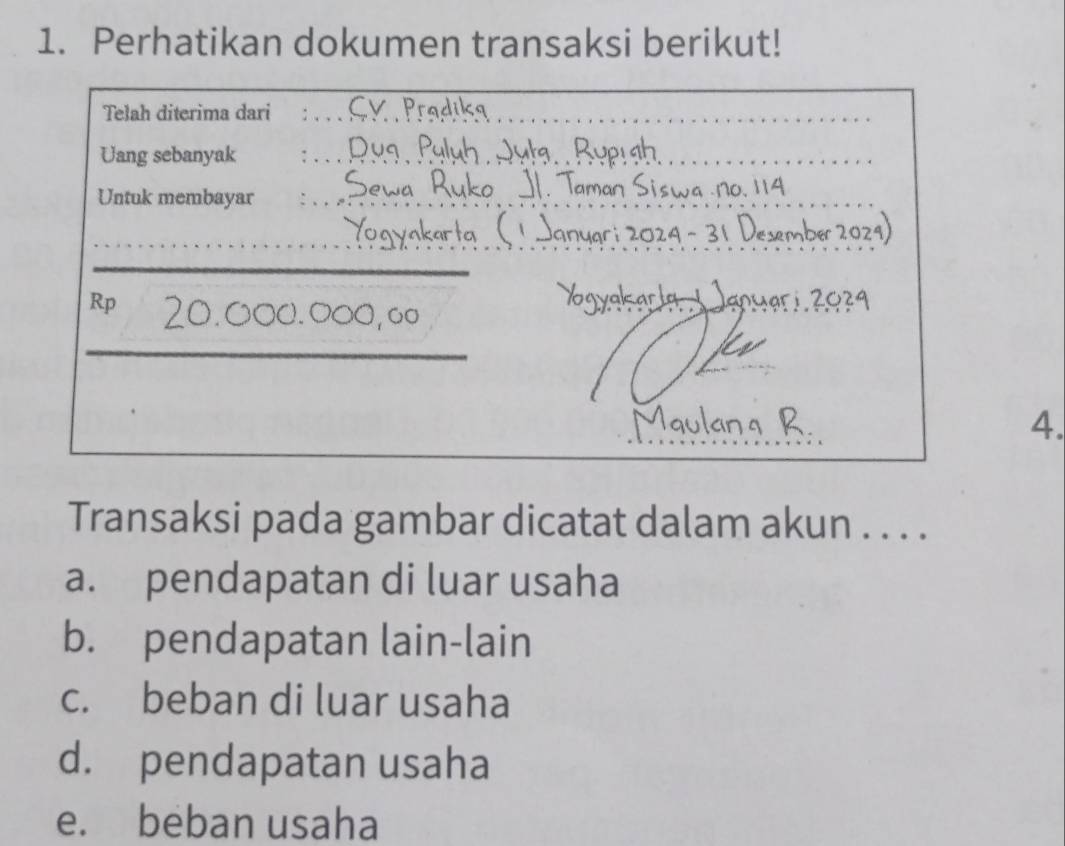 1. Perhatikan dokumen transaksi berikut!
Telah diterima dari : CV Pradika
Uang sebanyak : Dua Puluh Juta Rupiah
Untuk membayar : Sewa Ruko Jl. Taman Siswa no. 114
Yogyakarta (1 Januari 2024 - 31 Desember 2024)
Rp 20.000.000,00
Yogyakarta, 1 Januari 2024
Maulana R.
4.
Transaksi pada gambar dicatat dalam akun . . . .
a. pendapatan di luar usaha
b. pendapatan lain-lain
c. beban di luar usaha
d. pendapatan usaha
e. beban usaha